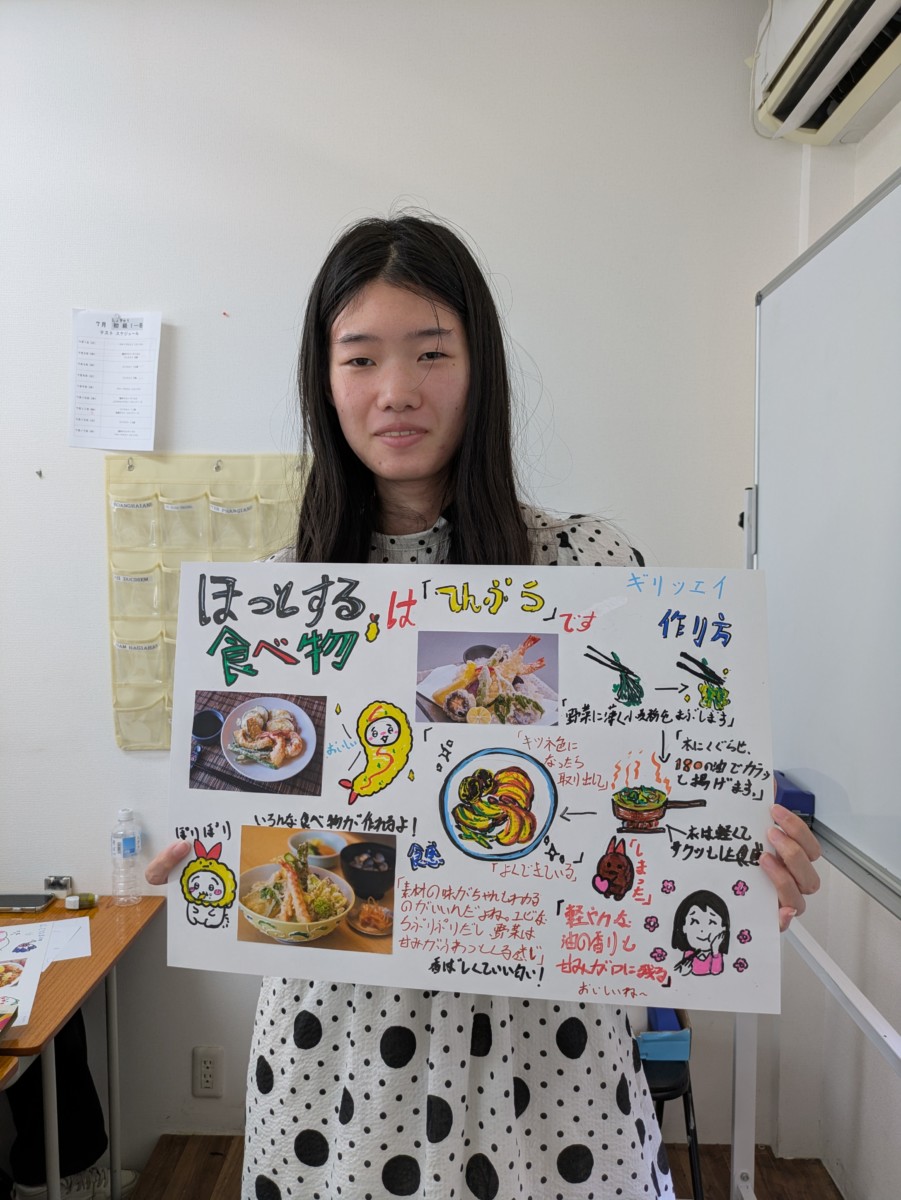 ほっとする
食べ物
は「てんぷら」です
ギリッエイ
作り方
「野菜に薄く小麦粉をまぶします」
「衣にくぐらせ、
180の油でカラッ
と揚げます。」
衣は軽くて
サクッとした食感
「キツネ色に
なったら
取り出して」
「よくできている」
おいしい
いろんな食べ物が作れるよ!
ぽりぽり
食感
「素材の味がちゃんとわかる
のがいいんだよね。エビは
ぷりぷりだし、野菜は
甘みがふわっとくる感じ」
香ばしくていい匂い!
「しまった」
「軽やかな
油の香りも
甘みが口に残る」
おいしいね〜
7月 初級1
テストスケジュール